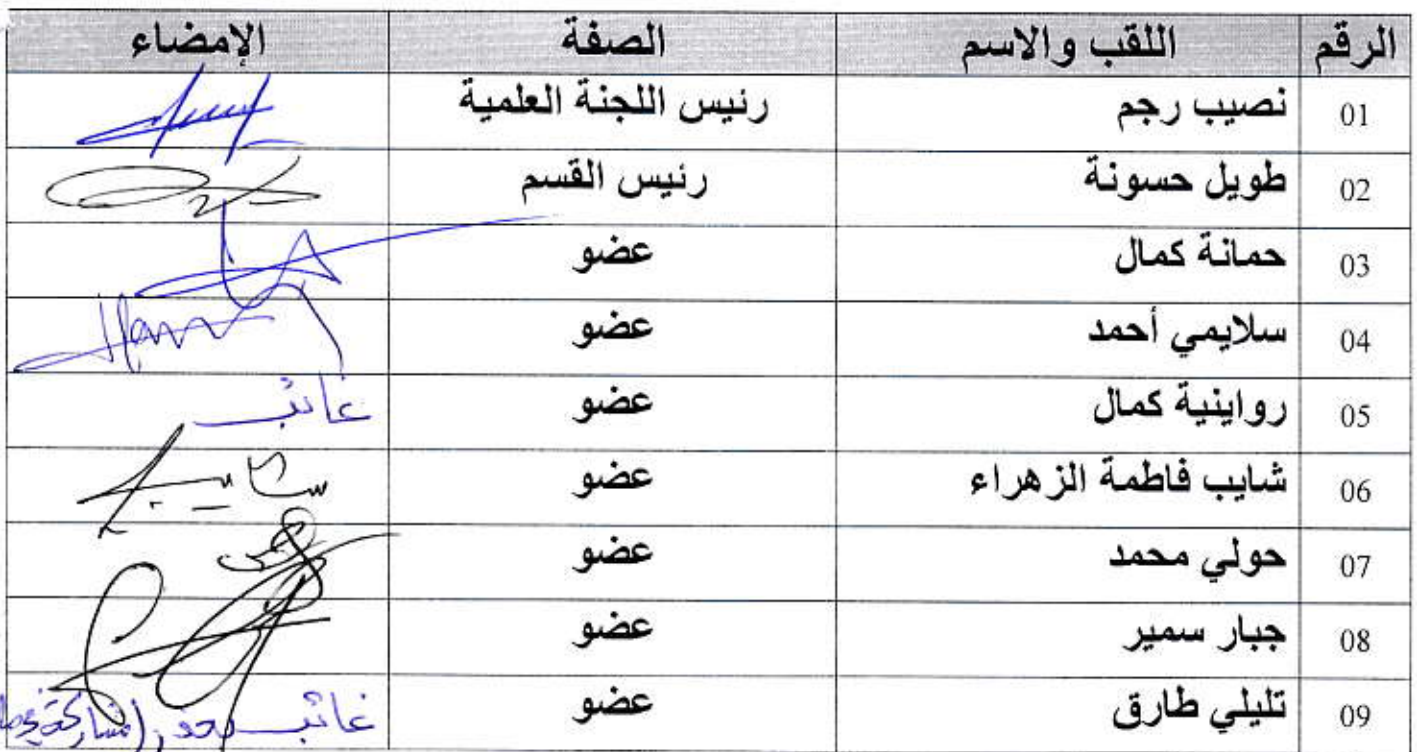 الرقم اللقب والاسم الصفة الإمضاء
01 نصيب رجم رئيس اللجنة العلمية
02 طويل حسونة رئيس القسم
03 حمانة كمال عضو
04 سلايمي أحمد عضو
05 رواينية كمال عضو غائب
06 شايب فاطمة الزهراء عضو
07 حولي محمد عضو
08 جبار سمير عضو
09 تليلي طارق عضو غائب